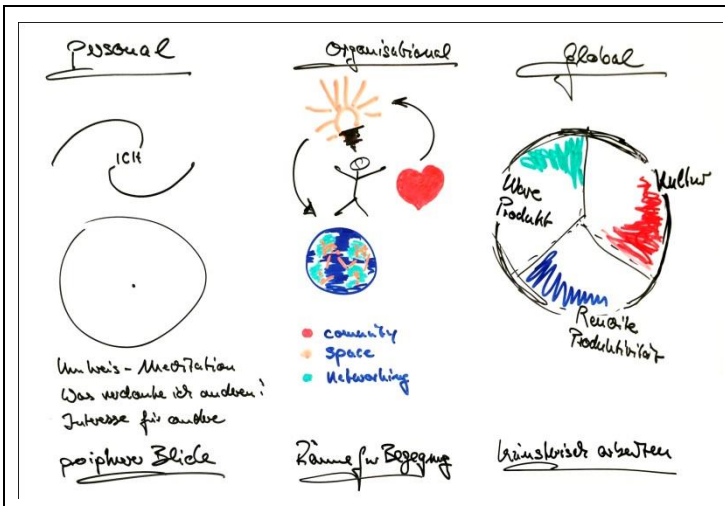 Personal
ICH
Umkreis - Meditation
Was verdanke ich anderen?
Interesse für andere
peripherer Blick
Organisational
comunity
space
Networking
Räume für Begegnung
Global
Ware
Produkt
Kultur
Rendite
Produktivität
künstlerisch arbeiten